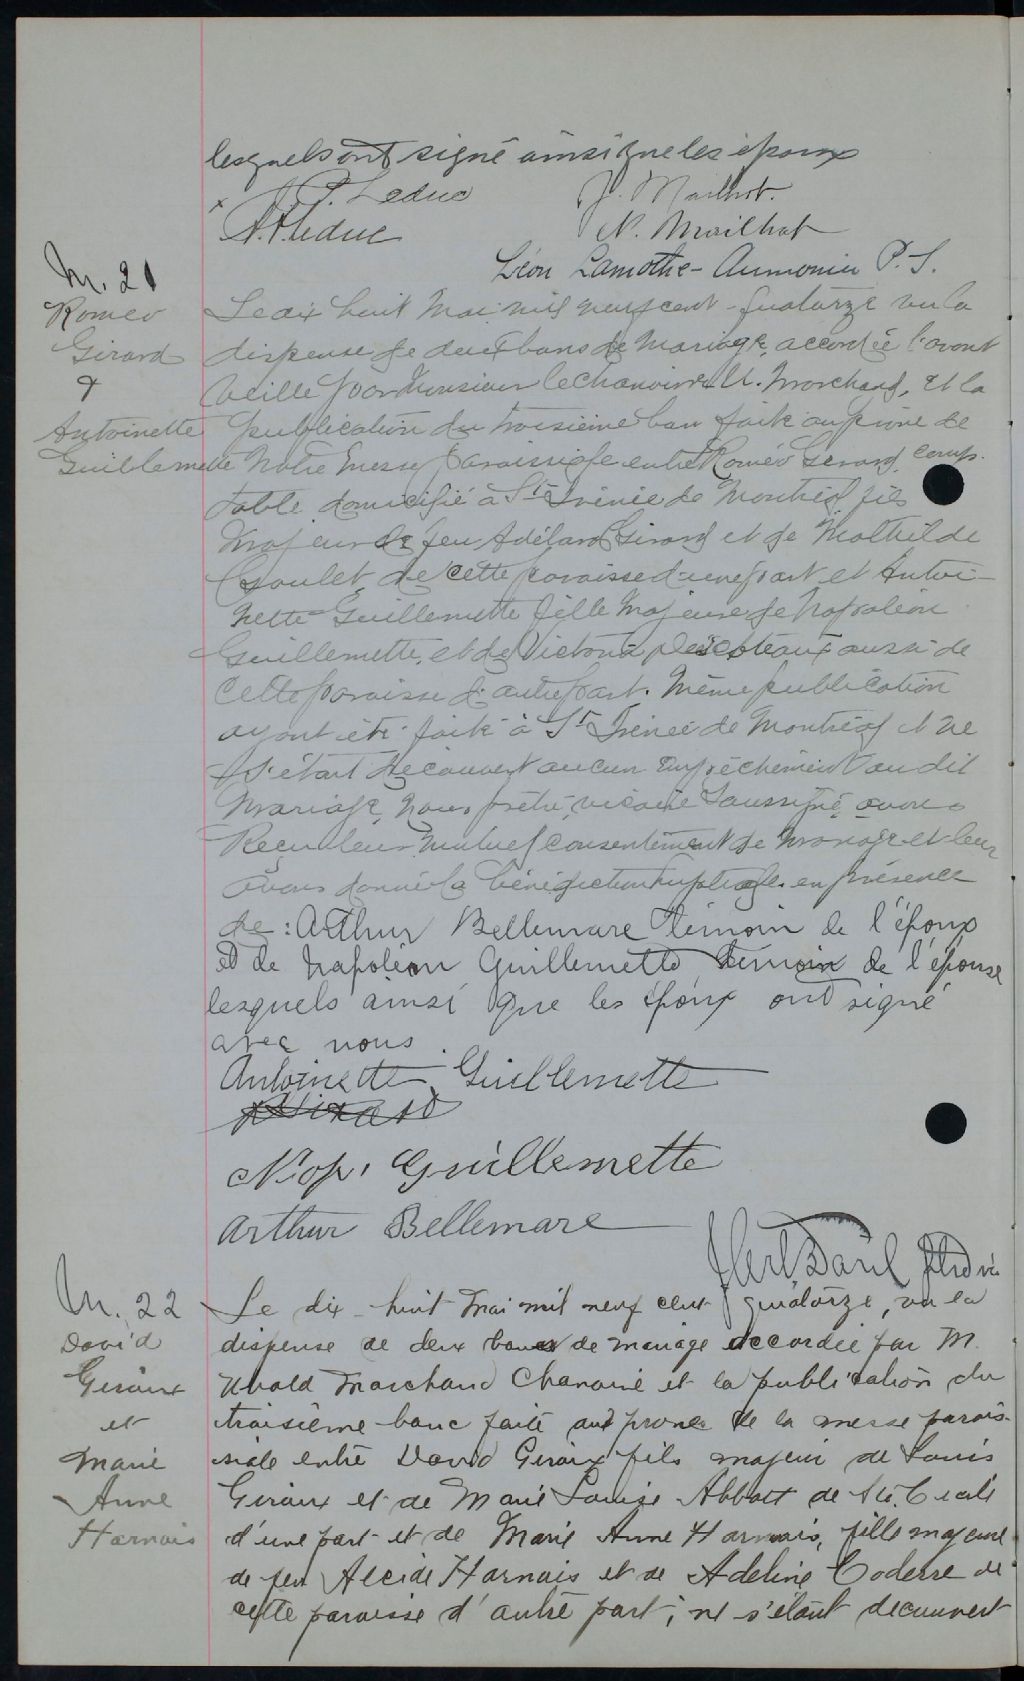 lesquels ont signé ainsi que les époux
P. Leduc J. Mailhot.
A. Leduc N. Mailhot
Léon Lamothe - Aumonier P. S.
M. 21
Romeo
Girard
&
Antoinette
Guillemette
Le dix huit Mai mil neuf cent - quatorze vu la
dispense de deux bans de mariage, accordée l'avant
veille par Monsieur le Chanoine U. Marchand, et la
publication du troisième ban faite au prône de
Notre Messe paroissiale entre Roméo Girard, comp-
table domicilié à St Irénée de Montréal fils
Majeur de feu Adélard Girard et de Mathilde
Goulet, de cette paroisse d'une part et Antoi-
nette Guillemette fille Majeure de Napoléon
Guillemette, et de Victoria Descoteaux aussi de
cette paroisse d'autre part. Même publication
ayant été faite à St Irénée de Montréal et ne
s'étant découvert aucun empêchement au dit
Mariage, Nous prêtre vicaire soussigné avons
Reçu leur Mutuel consentement de mariage et leur
avons donné la bénédiction nuptiale en présence
de : Arthur Bellemare témoin de l'époux
et de Napoléon Guillemette témoin de l'épouse
lesquels ainsi que les époux ont signé
avec nous.
Antoinette Guillemette
R Girard
Nap. Guillemette
Arthur Bellemare
M. 22
David
Geraux
et
Marie
Anne
Harnois
Le dix - huit mai mil neuf cent quatorze, vu la
dispense de deux bancs de mariage accordée par M.
Ubald Marchand Chanoine et la publication du
troisième banc faite au prone de la messe parois-
siale entre David Geraux fils majeur de Louis
Geraux et de Marie Louise Abbott de Ste Cecile
d'une part et de Marie Anne Harnois, fille majeure
de feu Alcide Harnois et de Adeline Coderre de
cette paroisse d'autre part ; ne s'étant decouvert